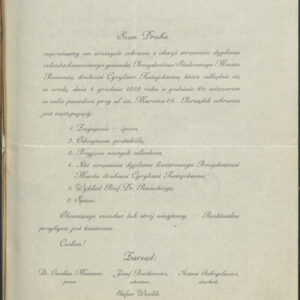 Szan. Druha
zapraszamy na uroczyste zebranie z okazji wręczenia dyplomu
członka honorowego gniazda, Prezydentowi Stołecznego Miasta
Poznania, druhowi Cyrylowi Ratajskiemu, które odbędzie się
w środę, dnia 4 grudnia 1929 roku o godzinie 8% wieczorem
w sali posiedzeń przy ul. św. Marcina 65. Porządek zebrania
jest następujący:
1. Zagajenie - śpiew,
2. Odczytanie protokółu,
3. Przyjęcie nowych członków,
4. Akt wręczenia dyplomu honorowego Prezydentowi
Miasta druhowi Cyrylowi Ratajskiemu,
5. Wykład Prof. Dr.
6. Śpiew.
Obowiązuje mundur lub strój wizytowy. Punktualne
przybycie jest konieczne.
Czołem!
Zarząd:
Dr. Czesław Meissner, Józef Bartkowicz, Antoni
prezes
Stefan